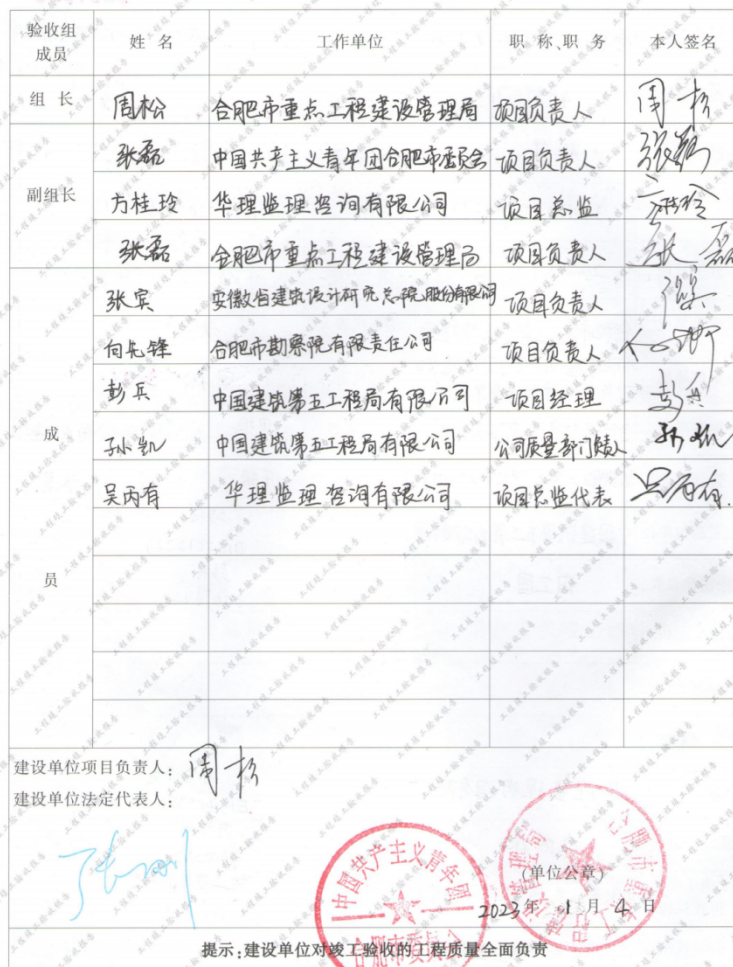 验收组成员 姓名 工作单位 职称、职务 本人签名
组长 周松 合肥市重点工程建设管理局 项目负责人 周松
张磊 中国共产主义青年团合肥市委员会 项目负责人
副组长 方桂玲 华理监理咨询有限公司 项目总监
张磊 合肥市重点工程建设管理局 项目负责人 张磊
张宾 安徽省建筑设计研究总院股份有限公司 项目负责人
何先锋 合肥市勘察院有限责任公司 项目负责人
彭兵 中国建筑第五工程局有限公司 项目经理 彭兵
成 孙凯 中国建筑第五工程局有限公司 公司质量部门负责人 孙凯
吴丙有 华理监理咨询有限公司 项目总监代表 吴丙有
员
建设单位项目负责人：周松
建设单位法定代表人：
中国共产主义青年团
合肥市委员会
合肥市重点工程建设管理局
(单位公章)
2023年 1月 4日
提示：建设单位对竣工验收的工程质量全面负责
工程竣工验收报告